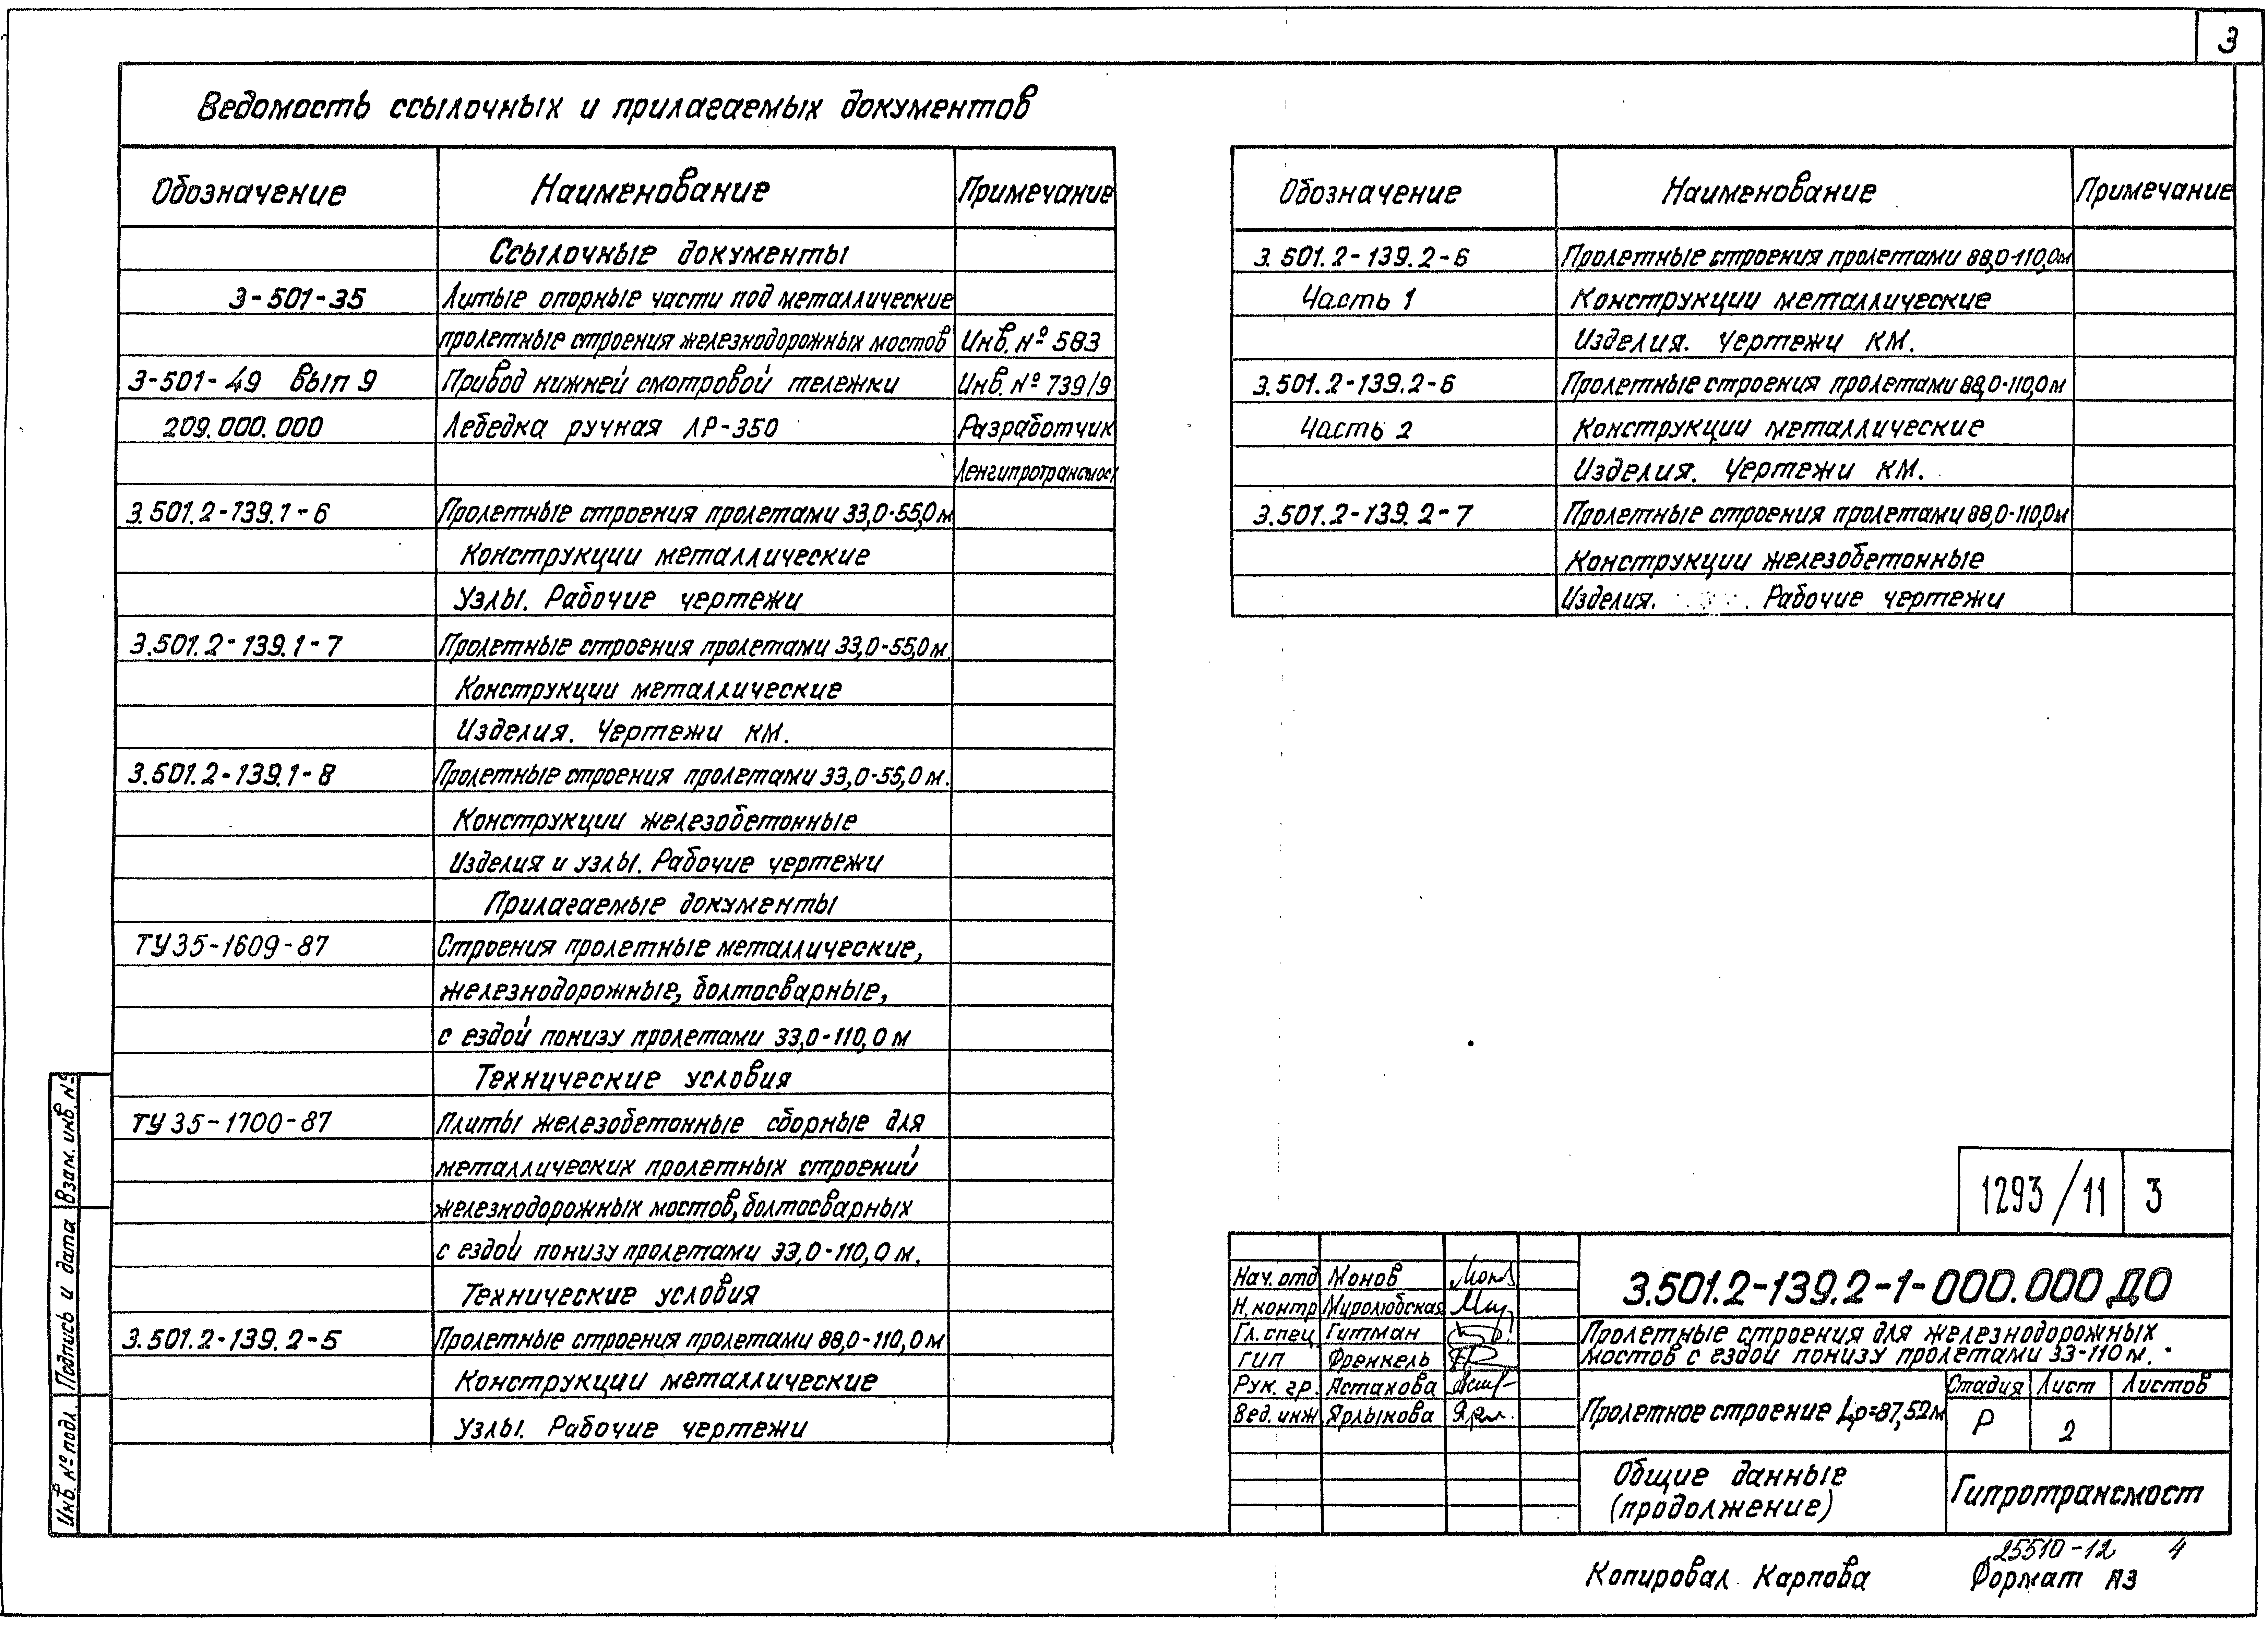 3
Ведомость ссылочных и прилагаемых документов
Обозначение Наименование Примечание
Ссылочные документы
3-501-35 Литые опорные части под металлические
пролетные строения железнодорожных мостов Инв. № 583
3-501-49 Вып 9 Привод нижней смотровой тележки Инв. № 739/9
209.000.000 Лебедка ручная ЛР-350 Разработчик
Ленгипротрансмост
3.501.2-139.1-6 Пролетные строения пролетами 33,0-55,0 м
Конструкции металлические
Узлы. Рабочие чертежи
3.501.2-139.1-7 Пролетные строения пролетами 33,0-55,0 м.
Конструкции металлические
Изделия. Чертежи КМ.
3.501.2-139.1-8 Пролетные строения пролетами 33,0-55,0 м.
Конструкции железобетонные
Изделия и узлы. Рабочие чертежи
Прилагаемые документы
ТУ 35-1609-87 Строения пролетные металлические,
железнодорожные, болтосварные,
с ездой понизу пролетами 33,0-110,0 м
Технические условия
ТУ 35-1700-87 Плиты железобетонные сборные для
металлических пролетных строений
железнодорожных мостов, болтосварных
с ездой понизу пролетами 33,0-110,0 м.
Технические условия
3.501.2-139.2-5 Пролетные строения пролетами 88,0-110,0 м
Конструкции металлические
Узлы. Рабочие чертежи
Обозначение Наименование Примечание
3.501.2-139.2-6 Пролетные строения пролетами 88,0-110,0 м
Часть 1 Конструкции металлические
Изделия. Чертежи КМ.
3.501.2-139.2-6 Пролетные строения пролетами 88,0-110,0 м
Часть 2 Конструкции металлические
Изделия. Чертежи КМ.
3.501.2-139.2-7 Пролетные строения пролетами 88,0-110,0 м
Конструкции железобетонные
Изделия. Рабочие чертежи
1293/11 3
Нач. отд Монов
Н. контр Миролюбская
Гл. спец Гитман
ГИП Френкель
Рук. гр. Астахова
Вед. инж Ярлыкова
3.501.2-139.2-1-000.000 ДО
Пролетные строения для железнодорожных
мостов с ездой понизу пролетами 33-110 м.
Пролетное строение Lр=87,52м
Стадия Лист Листов
Р 2
Общие данные
(продолжение)
Гипротрансмост
25510-12 4
Копировал Карпова Формат А3
Взам. инв. №
Подпись и дата
Инв. № подл.